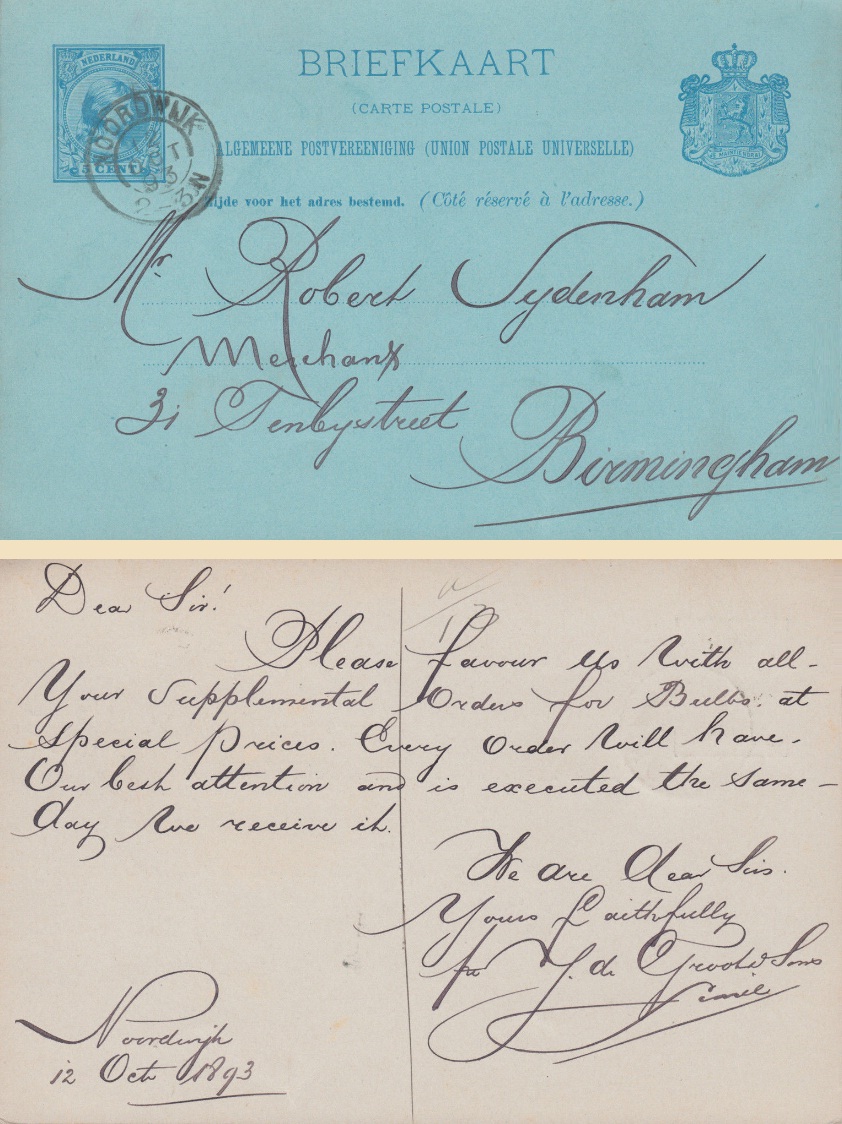 NEDERLAND
5 CENT
BRIEFKAART
(CARTE POSTALE)
ALGEMEENE POSTVEREENIGING (UNION POSTALE UNIVERSELLE)
Zijde voor het adres bestemd. (Côté réservé à l'adresse.)
JE MAINTIENDRAI
NOORDWIJK
12
OCT
93
2-3N
Mr. Robert Sydenham
Merchant
31 Tenbystreet
Birmingham
Dear Sir!
Please favour us with all-
Your Supplemental Orders for Bulbs. at
Special prices. Every Order Will have.
Our best attention and is executed the same-
day We receive it.
We are dear Sirs.
Yours faithfully
de Groot & Sons
Noordwijk
12 Oct 1893